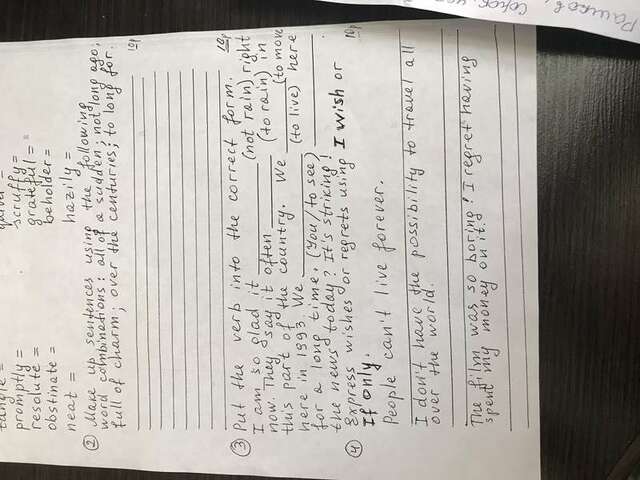 tangle =
quiver =
promptly =
scruffy =
resolute =
grateful =
obstinate =
beholder =
neat =
hazily =
② Make up sentences using the following
word combinations: all of a sudden; not long ago;
full of charm; over the centuries; to long for.
10p
③ Put the verb into the correct form. 10p
I am so glad it ____________ (not rain) right
now. They say it often ________ (to rain) in
this part of the country. We __________ (to move
here in 1993. We ____________ (to live) here
for a long time. (You/to see) ____________
the news today? It's striking!
④ Express wishes or regrets using I wish or 10p
If only.
People can't live forever.
I don't have the possibility to travel all
over the world.
The film was so boring! I regret having
spent my money on it.